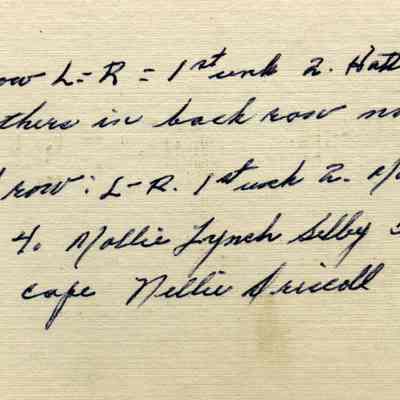 ow L-R = 1st unk 2. Hatt
thers in back row no
row: L-R. 1st unk 2. Mo
4. Mollie Lynch Selby
cape Nellie Driscoll